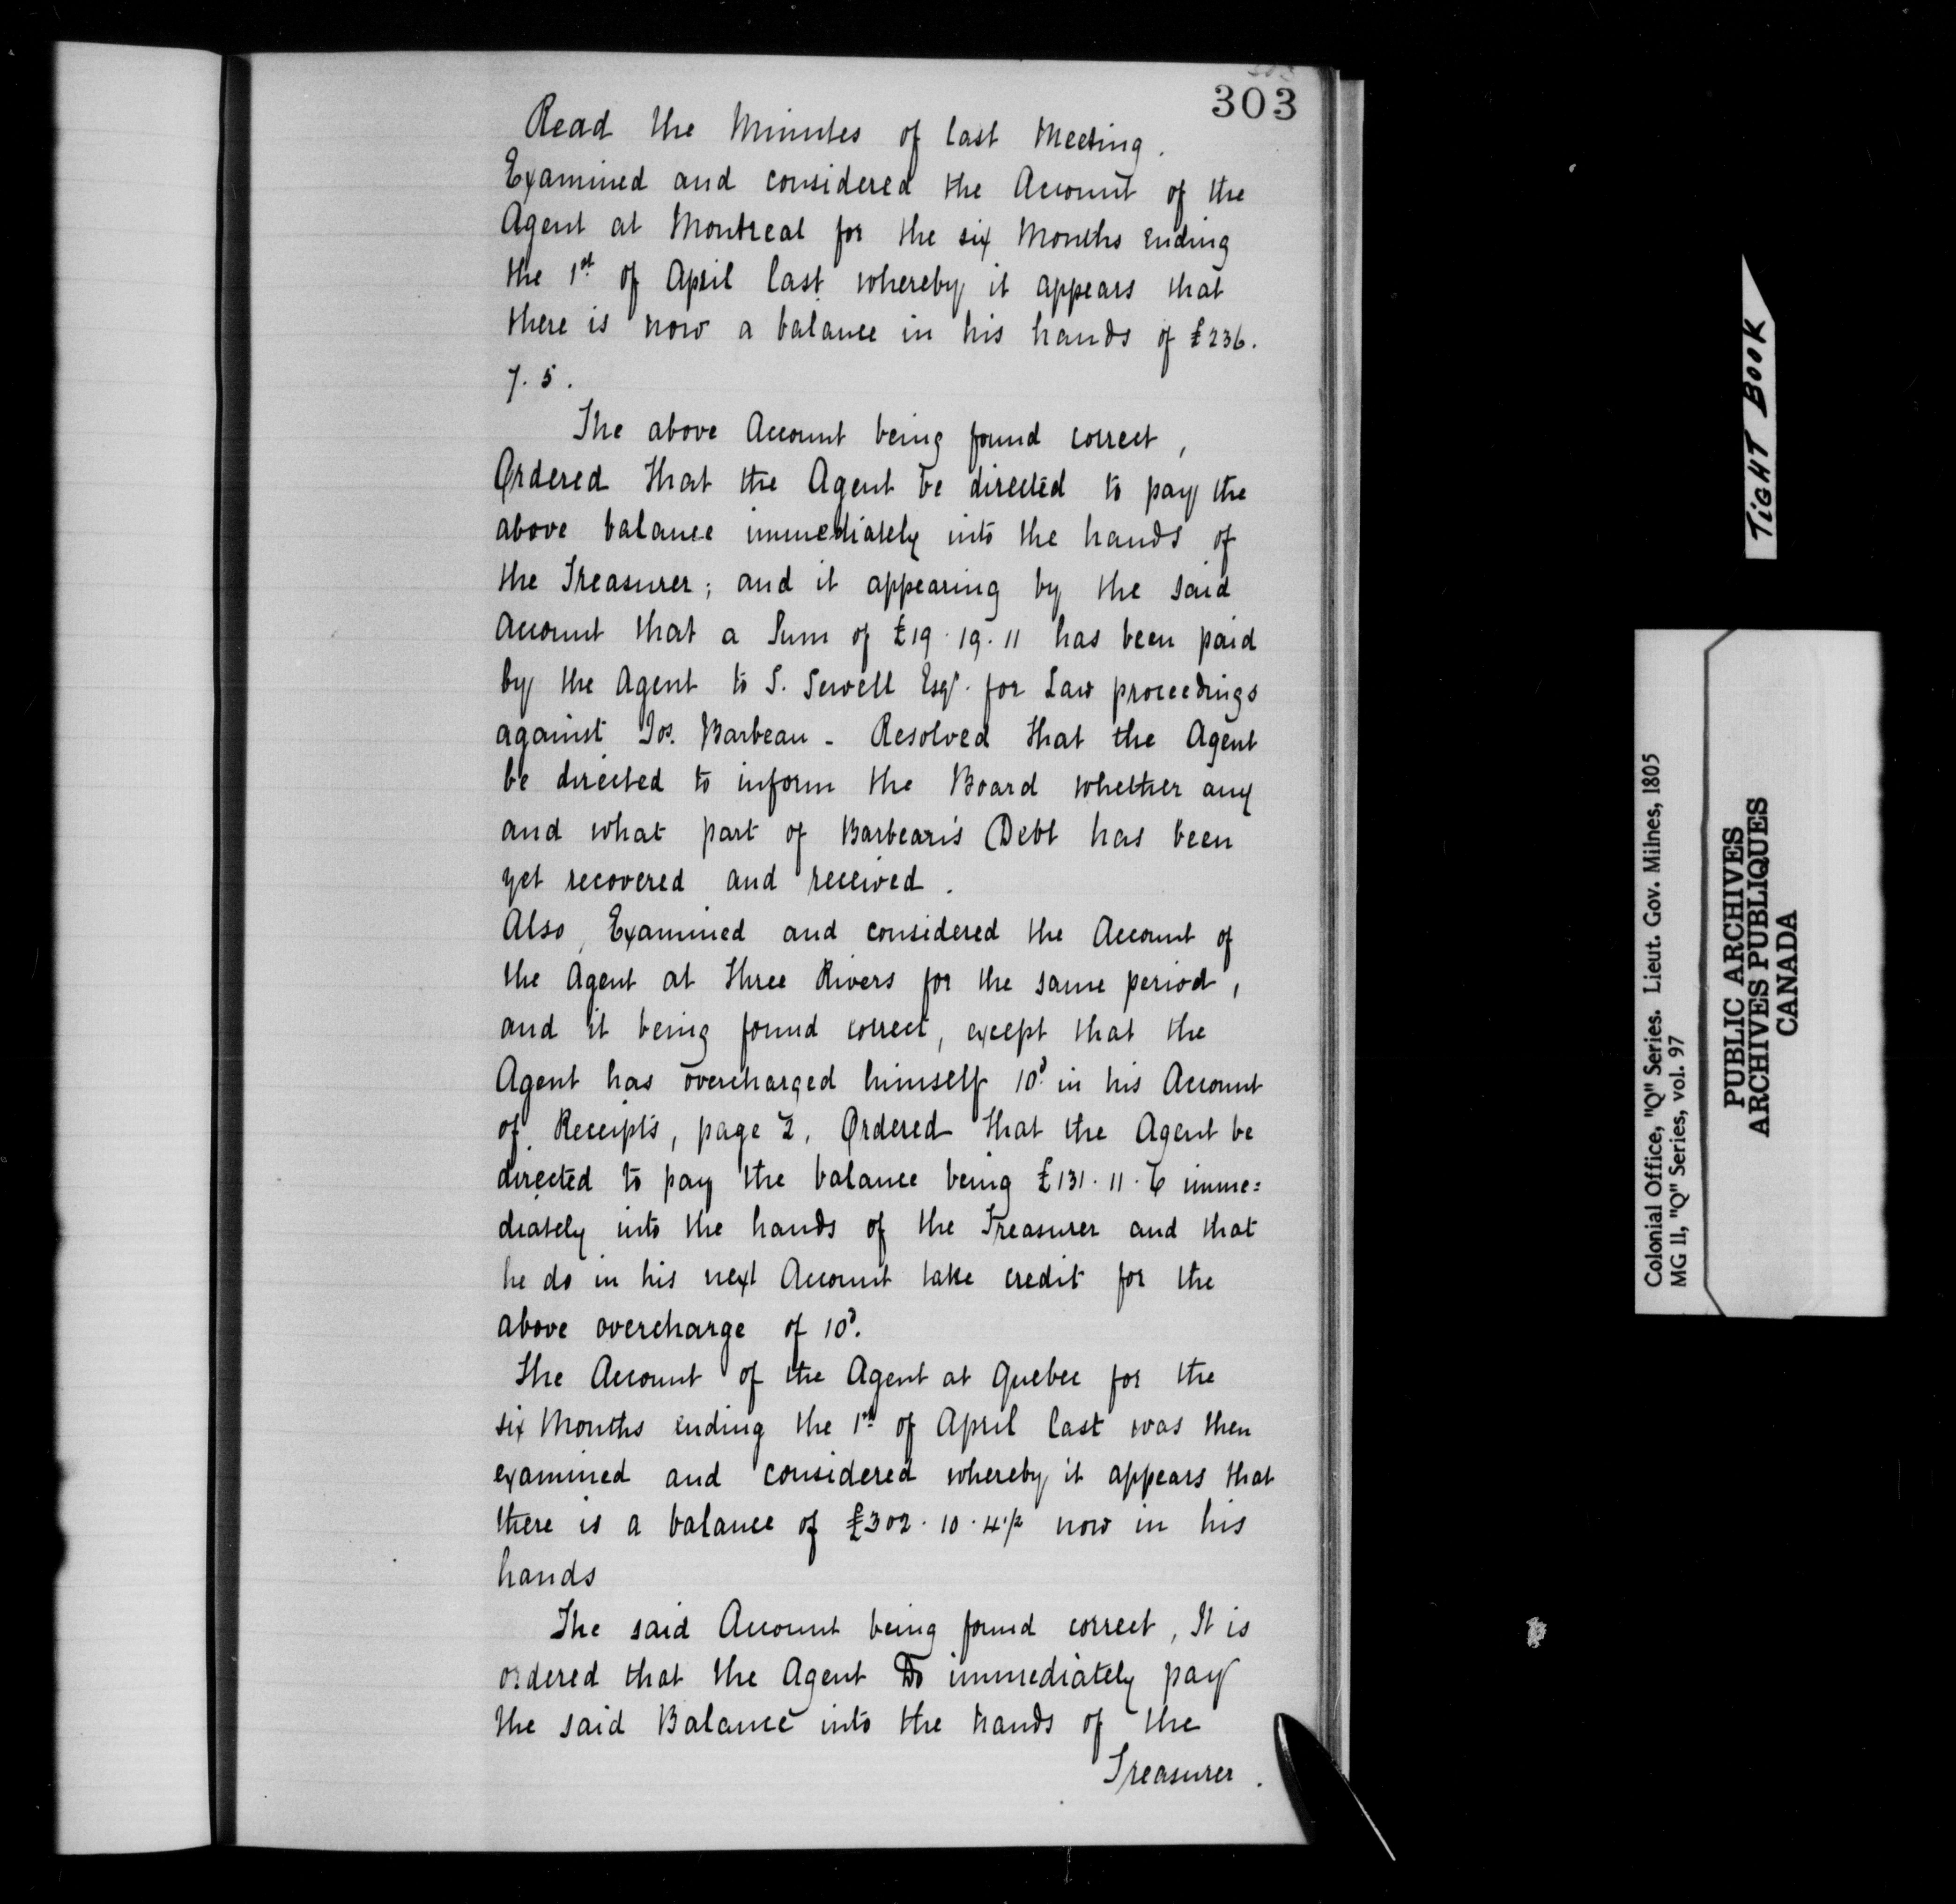 303
Read the Minutes of last Meeting.
Examined and considered the Account of the
Agent at Montreal for the six Months ending
the 1st of April last whereby it appears that
there is now a balance in his hands of £236.
7. 5.
The above Account being found correct,
Ordered that the Agent be directed to pay the
above balance immediately into the hands of
the Treasurer; and it appearing by the said
Account that a Sum of £19. 19. 11 has been paid
by the Agent to S. Sewell Esqr. for Law proceedings
against Jos. Barbeau - Resolved that the Agent
be directed to inform the Board whether any
and what part of Barbeau's Debt has been
yet recovered and received.
Also, Examined and considered the Account of
the Agent at Three Rivers for the same period,
and it being found correct, except that the
Agent has overcharged himself 10d. in his Account
of Receipts, page 2, Ordered that the Agent be
directed to pay the balance being £131. 11. 6 imme=
diately into the hands of the Treasurer and that
he do in his next Account take credit for the
above overcharge of 10d.
The Account of the Agent at Quebec for the
six Months ending the 1st of April last was then
examined and considered whereby it appears that
there is a balance of £302. 10. 4 1/2 now in his
hands
The said Account being found correct, It is
ordered that the Agent Do immediately pay
the said Balance into the hands of the
Treasurer.
TIGHT BOOK
Colonial Office, "Q" Series. Lieut. Gov. Milnes, 1805
MG 11, "Q" Series, vol. 97
PUBLIC ARCHIVES
ARCHIVES PUBLIQUES
CANADA